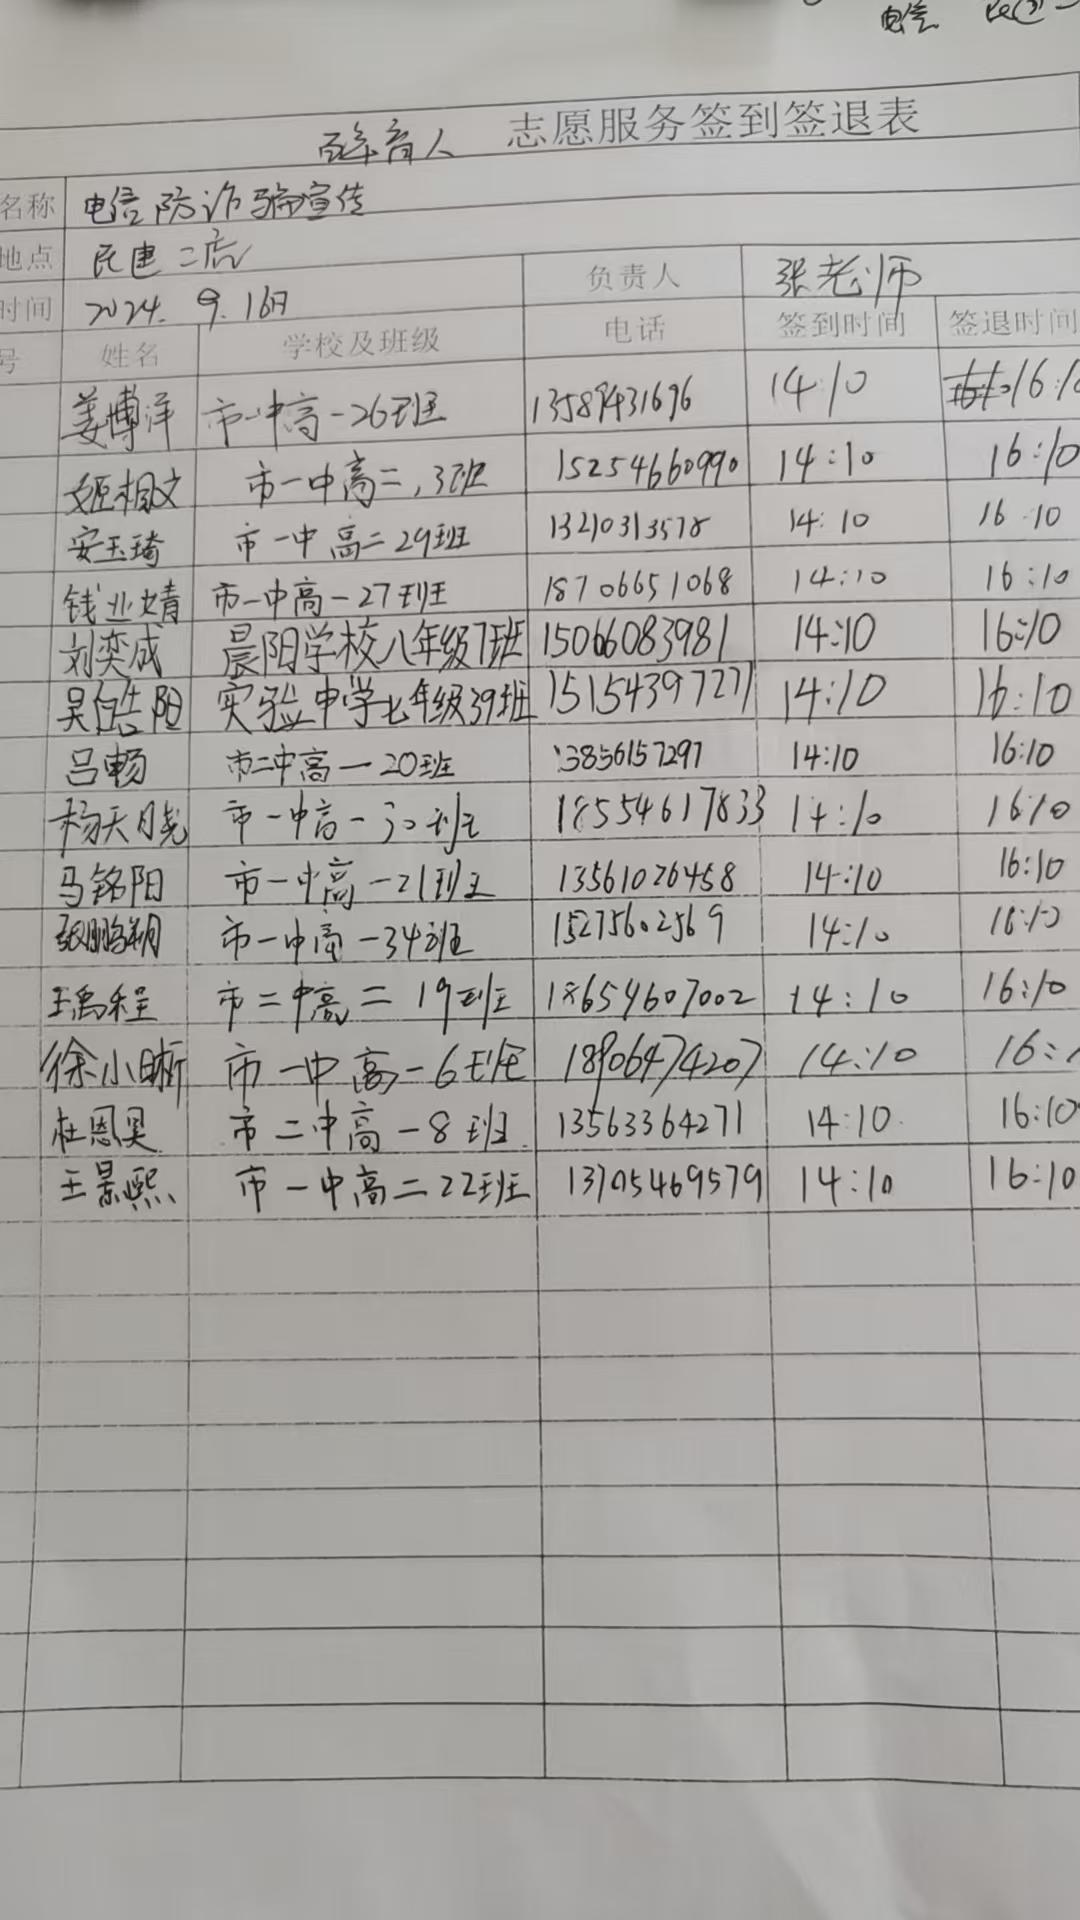 电信
百年育人 志愿服务签到签退表
名称 电信防诈骗宣传
地点 民建二底 负责人 张老师
时间 2024. 9. 16日
号 姓名 学校及班级 电话 签到时间 签退时间
姜博洋 市一中高一26班 13589431696 14:10 16:10
姬相文 市一中高二,3班 15254660990 14:10 16:10
安玉琦 市一中高二29班 13210313578 14:10 16:10
钱业婧 市一中高一27班 18706651068 14:10 16:10
刘奕成 晨阳学校八年级7班 15066083981 14:10 16:10
吴皓阳 实验中学七年级39班 15154397271 14:10 16:10
吕畅 市二中高一20班 13856157297 14:10 16:10
杨天晓 市一中高一30班 18554617833 14:10 16:10
马铭阳 市一中高一21班 13561026458 14:10 16:10
张鹏翔 市一中高一34班 15275602569 14:10 16:10
王禹程 市二中高二19班 18654607002 14:10 16:10
徐小晰 市一中高一6班 18906474207 14:10 16:1
杜恩昊 市二中高一8班 13563364271 14:10 16:10
王景熙 市一中高二22班 13705469579 14:10 16:10